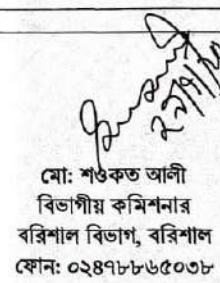 মো: শওকত আলী
বিভাগীয় কমিশনার
বরিশাল বিভাগ, বরিশাল
ফোন: ০২৪৭৮৮৬৫০৩৮